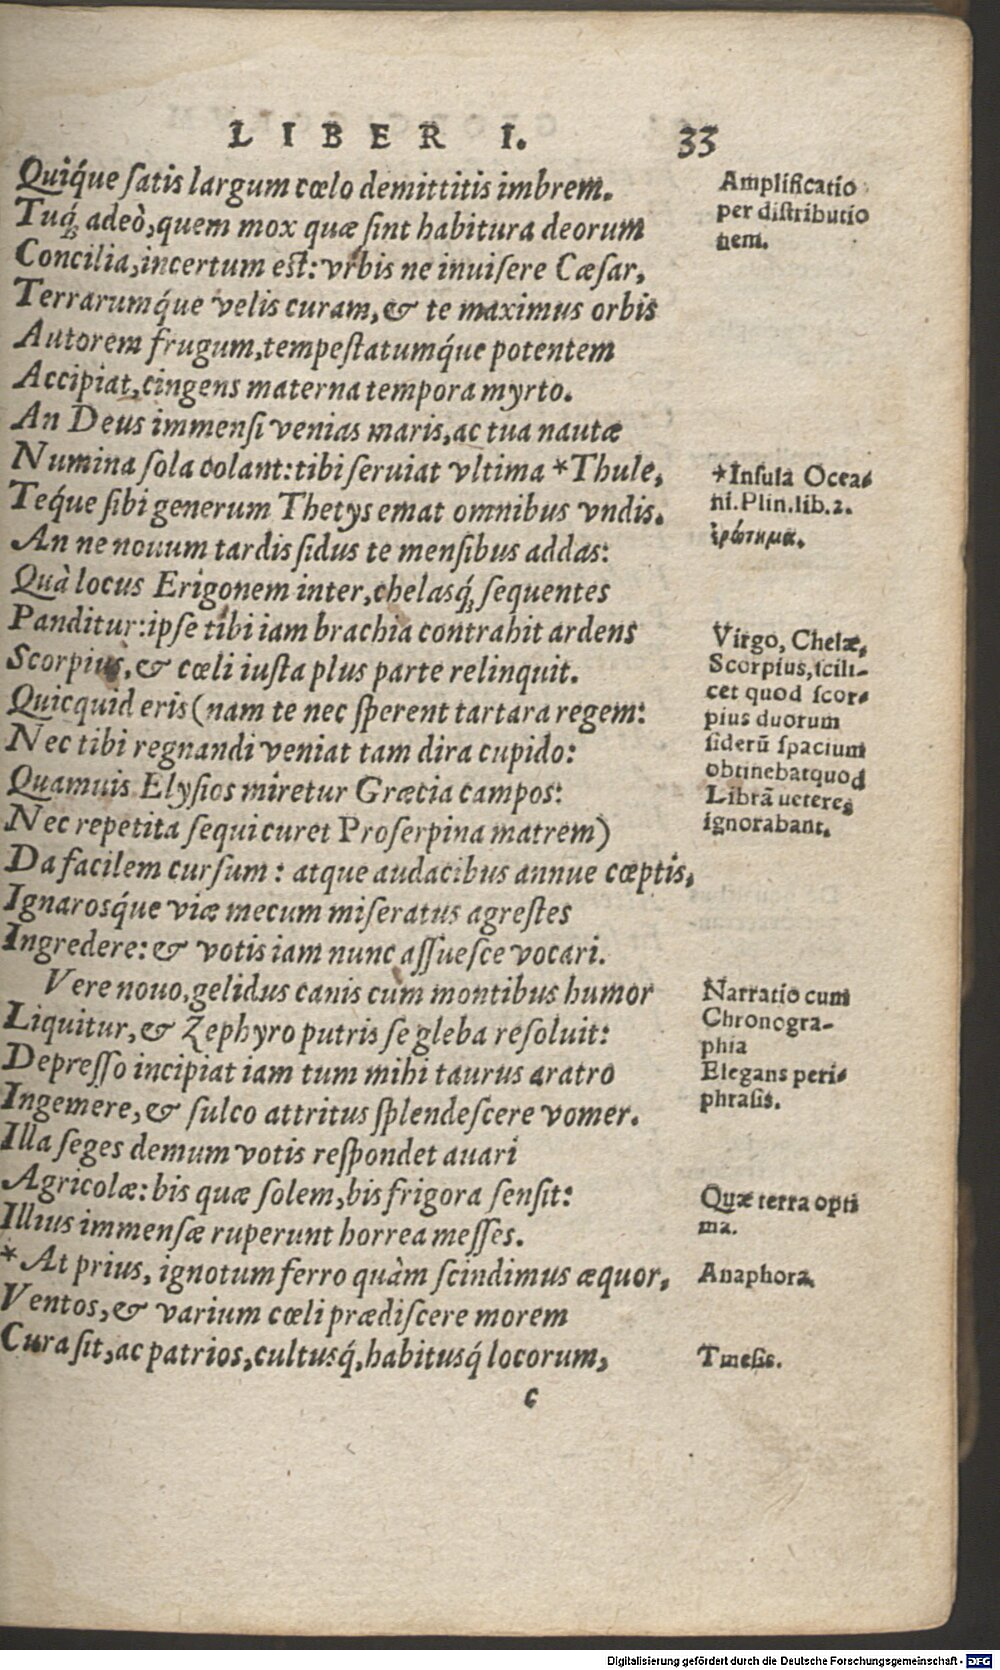 LIBER I. 33
Quiq́ue satis largum cœlo demittitis imbrem.
Tuq́; adeò, quem mox quæ sint habitura deorum
Concilia, incertum est: vrbis ne inuisere Cæsar,
Terrarumq́ue velis curam, & te maximus orbis
Autorem frugum, tempestatumq́ue potentem
Accipiat, cingens materna tempora myrto.
An Deus immensi venias maris, ac tua nautæ
Numina sola colant: tibi seruiat vltima *Thule,
Teq́ue sibi generum Thetys emat omnibus vndis.
An ne nouum tardis sidus te mensibus addas:
Quà locus Erigonem inter, chelasq́; sequentes
Panditur: ipse tibi iam brachia contrahit ardens
Scorpius, & cœli iusta plus parte relinquit.
Quicquid eris (nam te nec sperent tartara regem:
Nec tibi regnandi veniat tam dira cupido:
Quamuis Elysios miretur Græcia campos:
Nec repetita sequi curet Proserpina matrem)
Da facilem cursum: atque audacibus annue cœptis,
Ignarosq́ue viæ mecum miseratus agrestes
Ingredere: & votis iam nunc assuesce vocari.
Vere nouo, gelidus canis cum montibus humor
Liquitur, & Zephyro putris se gleba resoluit:
Depresso incipiat iam tum mihi taurus aratro
Ingemere, & sulco attritus splendescere vomer.
Illa seges demum votis respondet auari
Agricolæ: bis quæ solem, bis frigora sensit:
Illius immensæ ruperunt horrea messes.
*At prius, ignotum ferro quàm scindimus æquor,
Ventos, & varium cœli prædiscere morem
Cura sit, ac patrios, cultusq́, habitusq́ locorum,
c
Amplificatio
per distributio
nem.
*Insula Ocea-
ni. Plin. lib. 2.
ἐρώτημα.
Virgo, Chelæ,
Scorpius, scili-
cet quod scor-
pius duorum
siderū spacium
obtinebat quod
Librā ueteres
ignorabant.
Narratio cum
Chronogra-
phia
Elegans peri-
phrasis.
Quæ terra opti
ma.
Anaphora.
Tmesis.
Digitalisierung gefördert durch die Deutsche Forschungsgemeinschaft - DFG